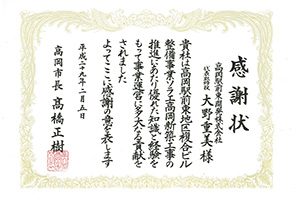 感謝状
高岡駅前東開発株式会社
代表取締役
大野重美様
貴社は高岡駅前東地区複合ビル
整備事業ソラエ高岡新築工事の
推進にあたり優れた知識と経験を
もって事業運営に多大なる貢献を
されました
よってここに感謝の意を表します
平成二十九年二月五日
高岡市長
髙橋正樹